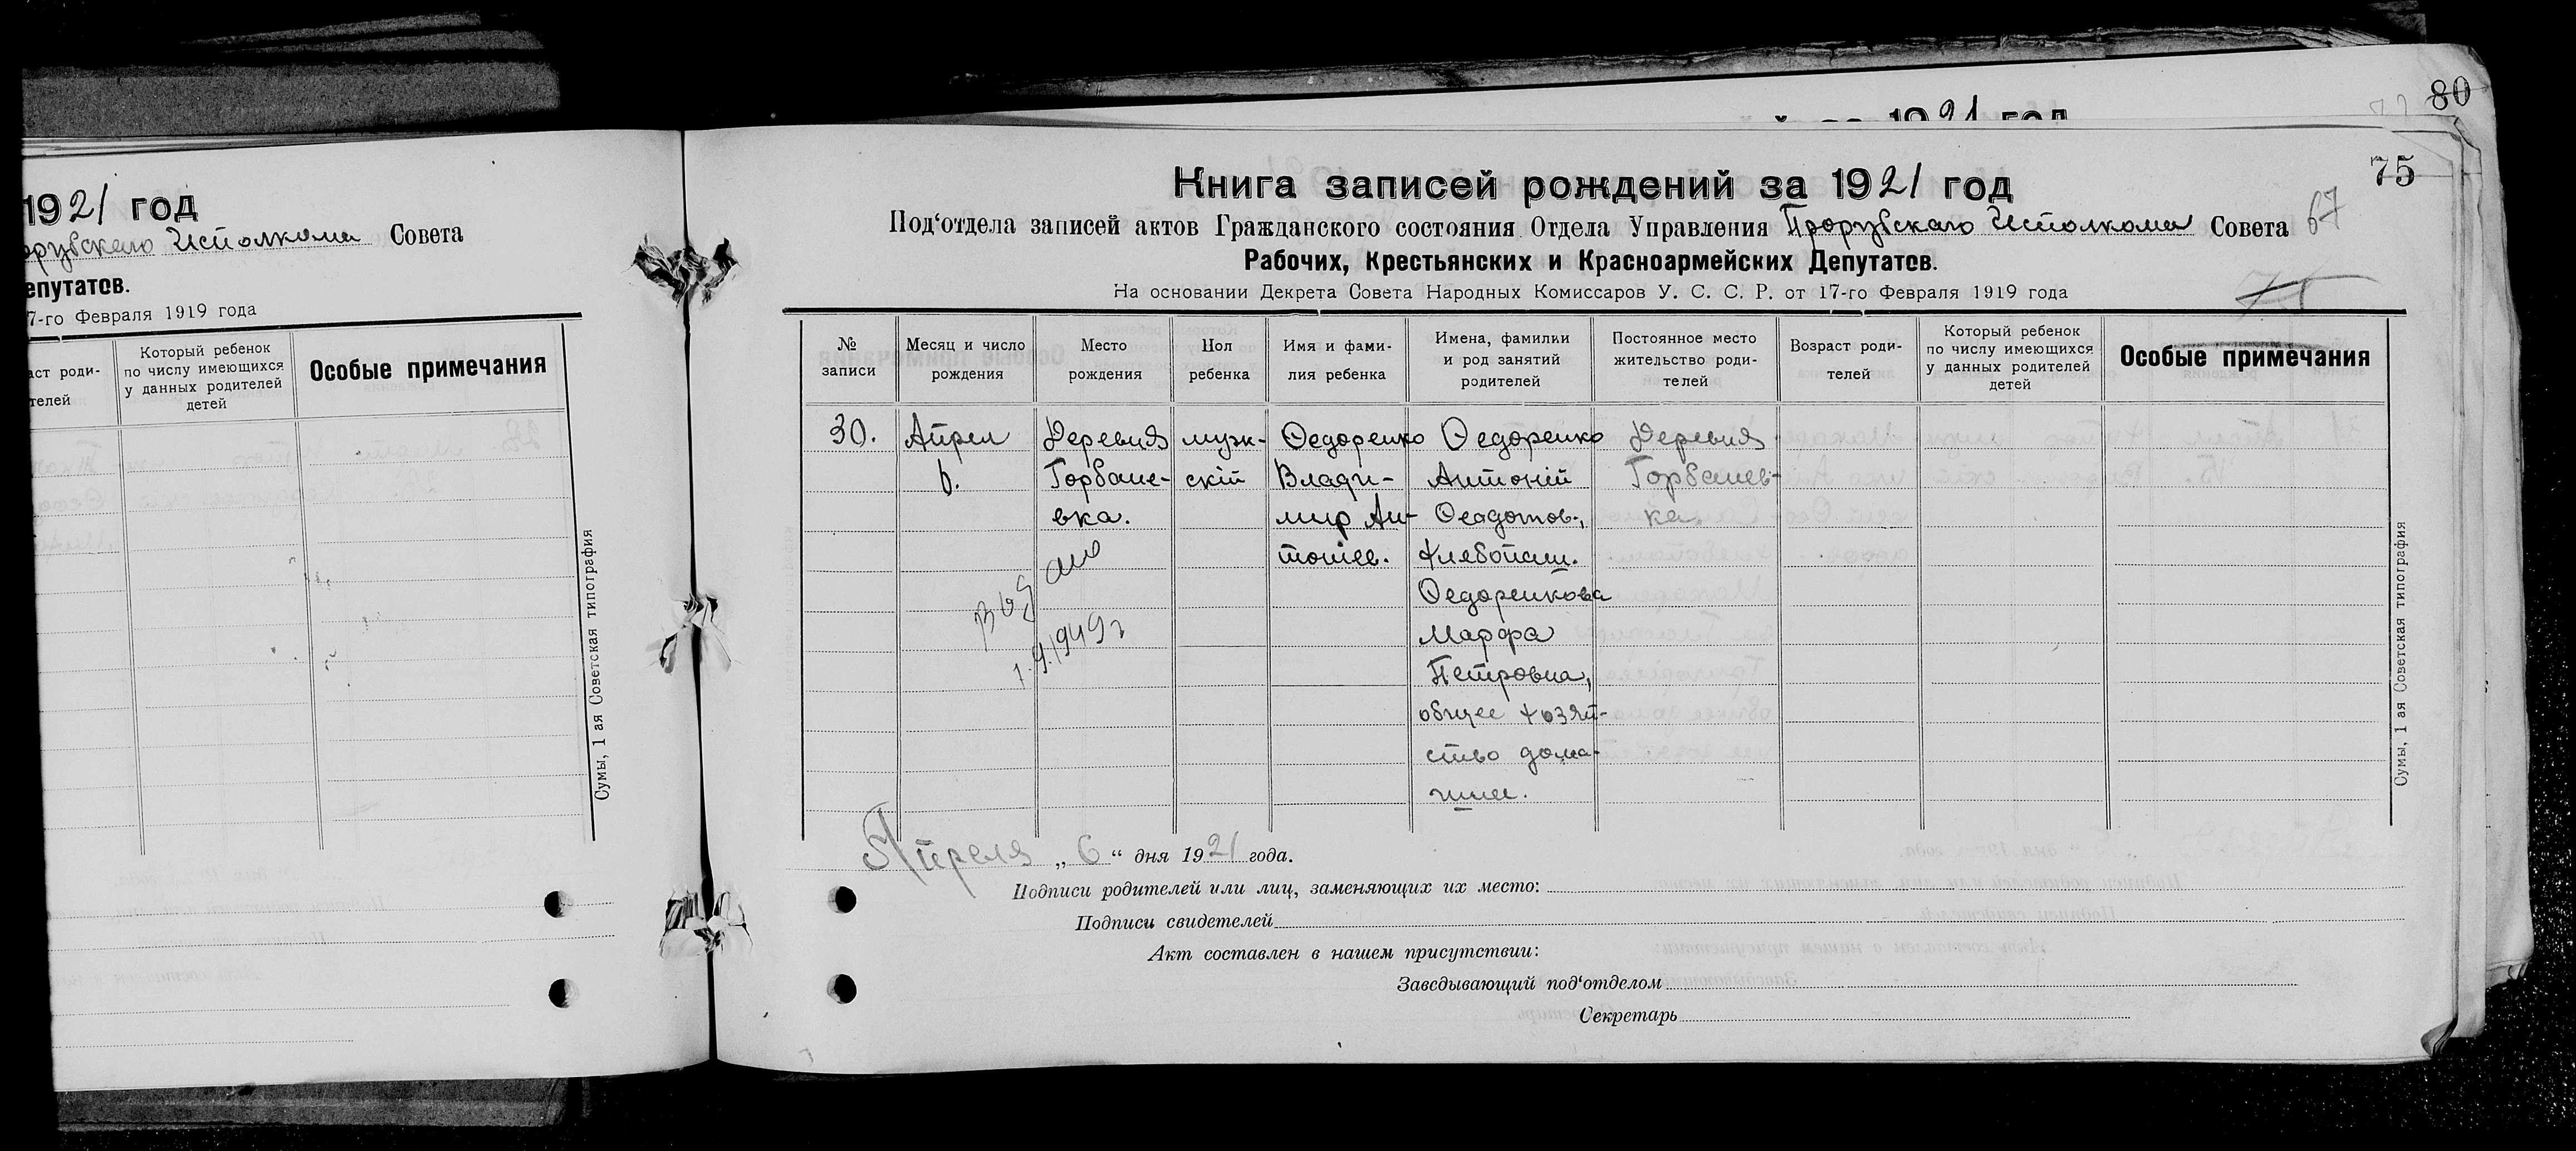 80
1921 год
75
1921 год
Исполкома Совета
епутатов.
7-го Февраля 1919 года
аст роди-
телей
Который ребенок
по числу имеющихся
у данных родителей
детей
Особые примечания
Сумы, 1 ая Советская типография
Книга записей рождений за 1921 год
Под‘отдела записей актов Гражданского состояния Отдела Управления Прорубскаго Исполкома Совета
67
Рабочих, Крестьянских и Красноармейских Депутатов.
На основании Декрета Совета Народных Комиссаров У. С. С. Р. от 17-го Февраля 1919 года
№
записи
Месяц и число
рождения
Место
рождения
Пол
ребенка
Имя и фами-
лия ребенка
Имена, фамилки
и род занятий
родителей
Постоянное место
жительство роди-
телей
Возраст роди-
телей
Который ребенок
по числу имеющихся
у данных родителей
детей
Особые примечания
30.
Апрел
6.
Деревня
Горбане-
вка.
муж-
скій
Ѳедоренко
Влади-
мир Ан-
тоніев.
Ѳедоренко
Антоній
Ѳеодотов.,
хлебопаш.
Ѳедоренкова
Марфа
Петровна,
общее хозяй-
ство дома-
шнее.
Деревня
Горбанев-
ка.
1.9.1949г
Апреля „6“ дня 1921 года.
Подписи родителей или лиц, заменяющих их место:
Подписи свидетелей
Акт составлен в нашем присутствии:
Заведывающий под‘отделом
Секретарь
Сумы, 1 ая Советская типография